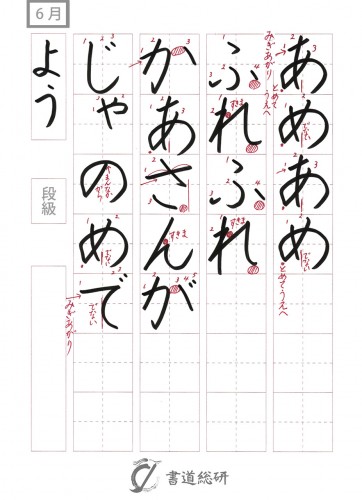 6月
あめあめ
ふれふれ
かあさんが
じゃのめで
よう
段級
みぎあがり
とめて
うえへ
でない
とめてうえへ
でない
すきま
すきま
でない
みぎあがり
書道総研